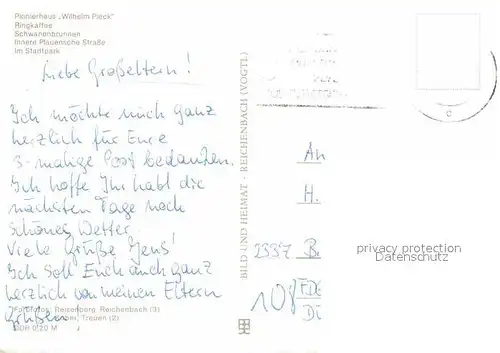 Pionierhaus „Wilhelm Pieck"
Ringkaffee
Schwanenbrunnen
Innere Plauensche Straße
Im Stadtpark
Liebe Großeltern!
Ich möchte mich ganz
herzlich für Eure
3-malige Post bedanken.
Ich hoffe Ihr habt die
nächsten Tage noch
schönes Wetter.
Viele Grüße Jens!
Ich soll Euch auch ganz
herzlich von meinen Eltern
grüßen!
Farbfotos: Reisenberg, Reichenbach (3)
Treuen (2)
DDR 0,20 M
BILD UND HEIMAT · REICHENBACH (VOGTL)
c
An
H.
2337 B
108
privacy protection
Datenschutz